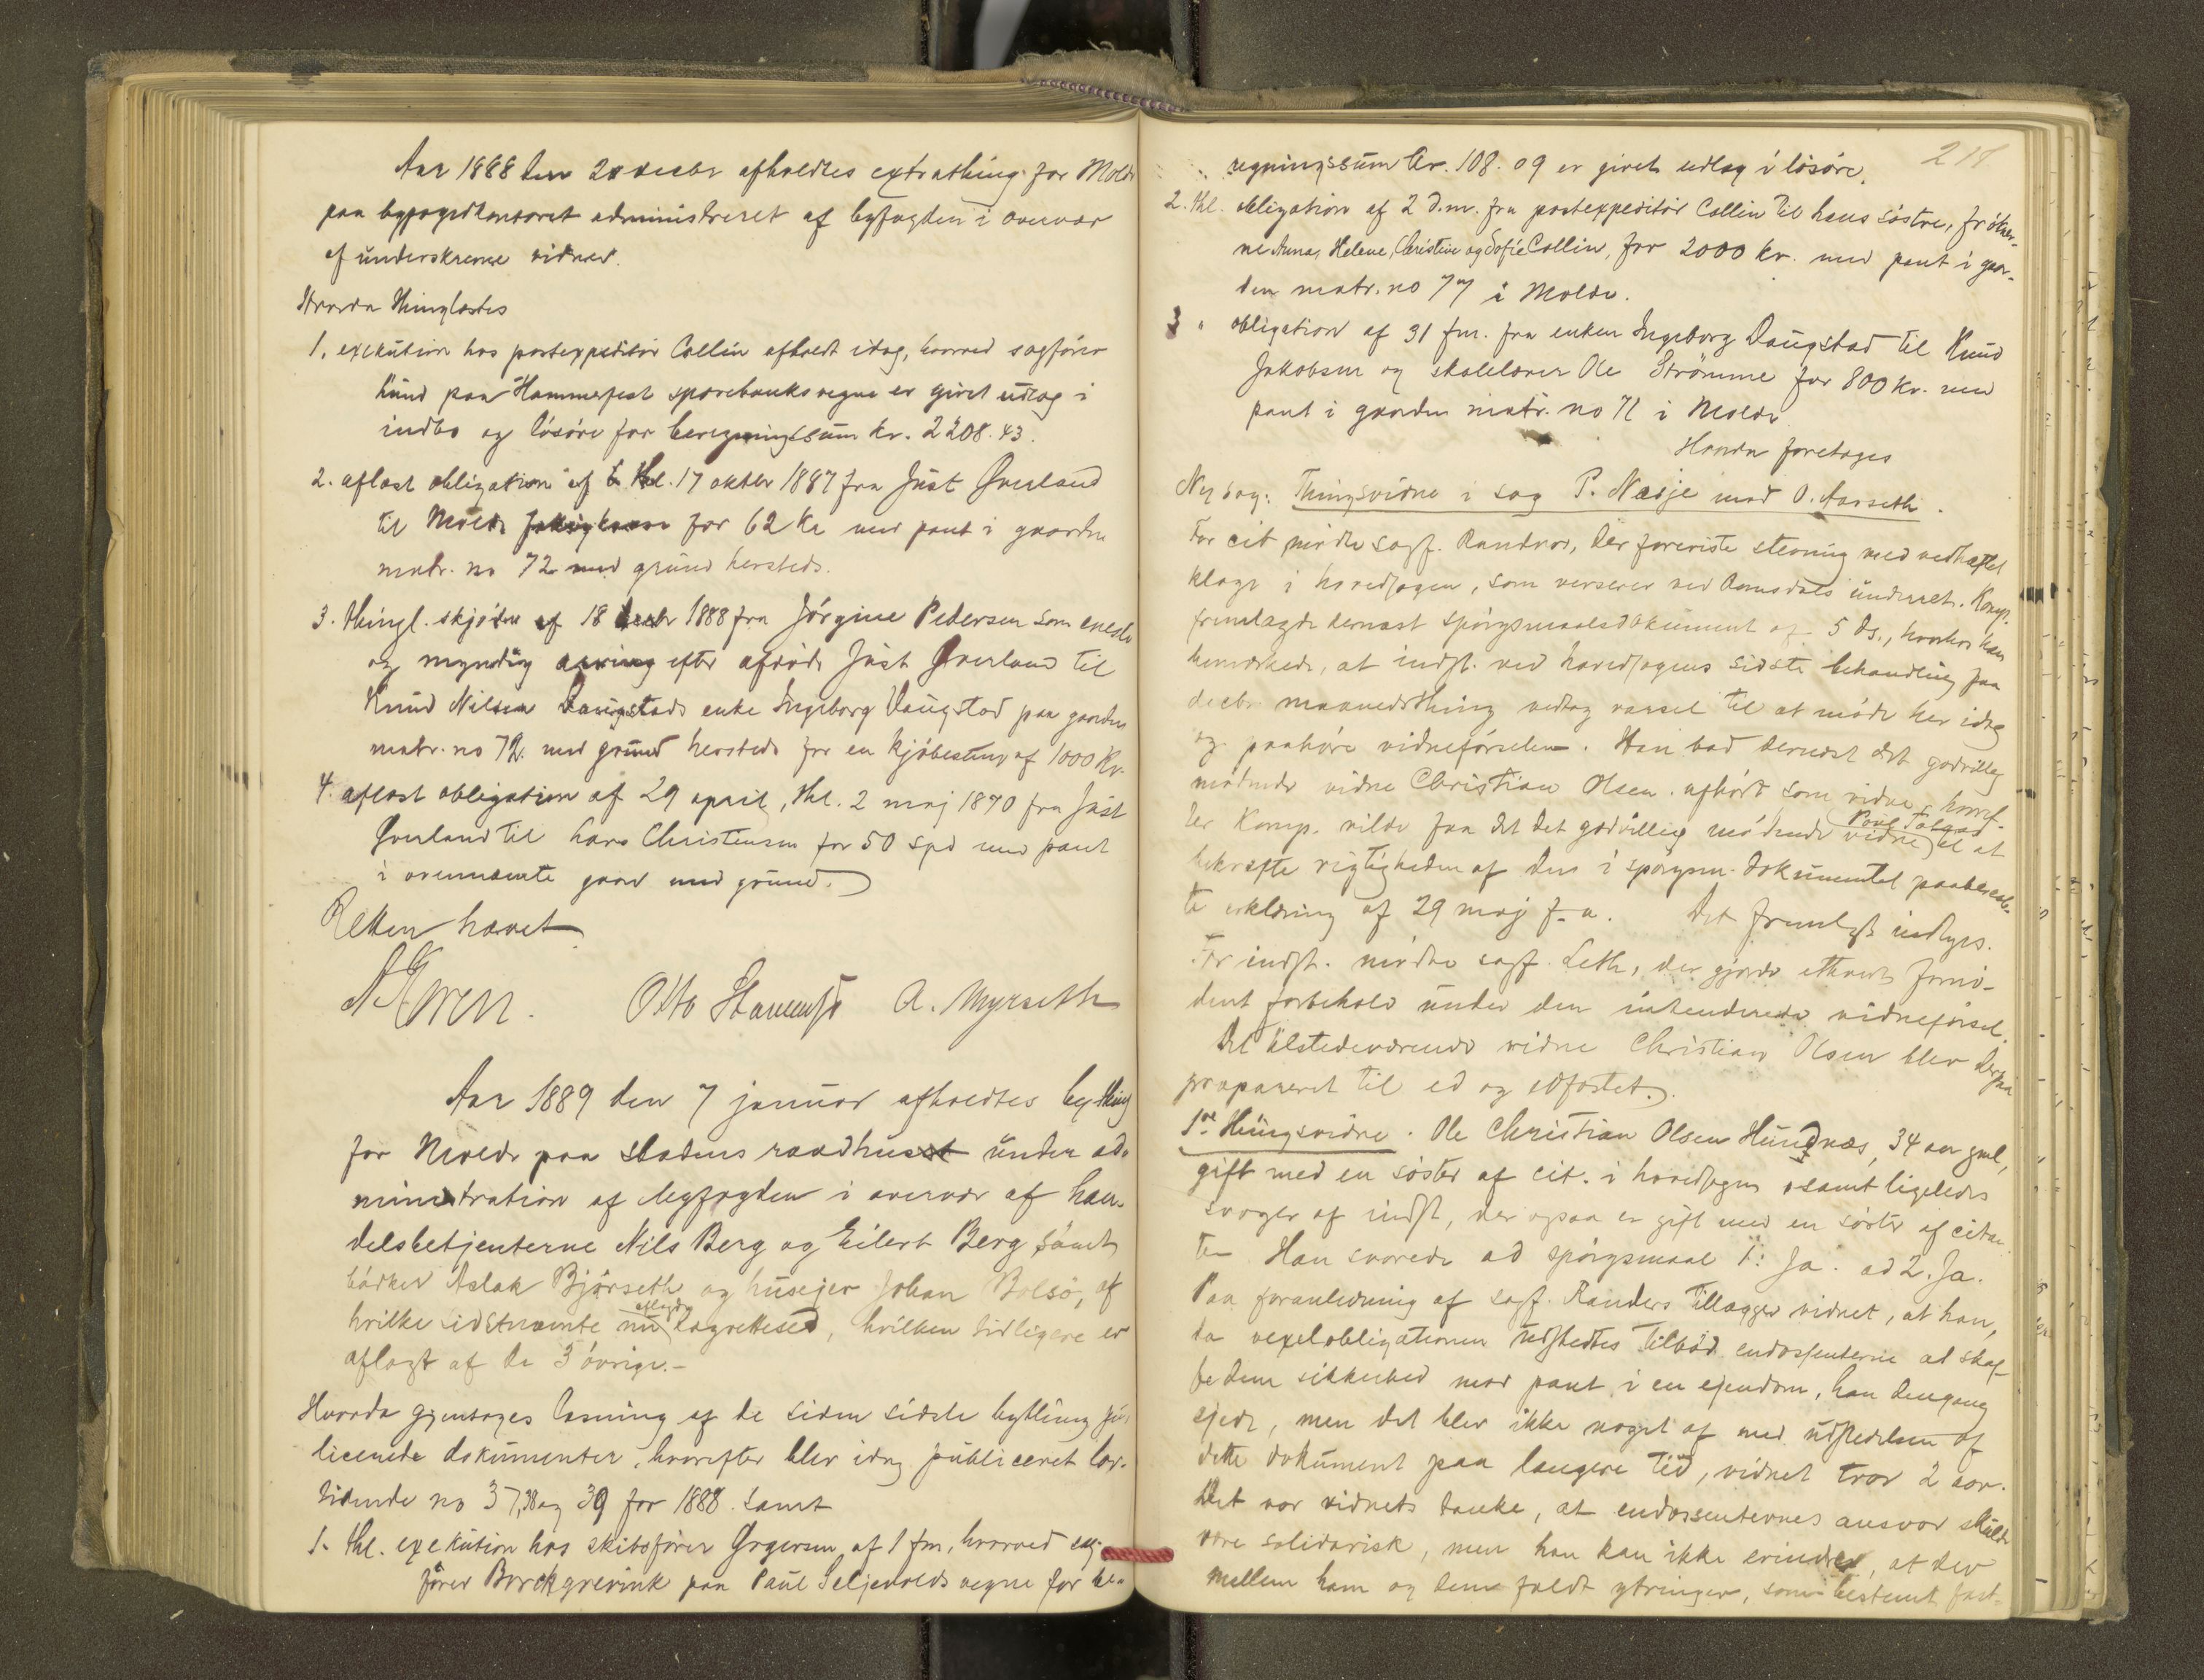 Aar 1888 den 2 decbr afholdtes extrathing for Molde
paa byfogedkontoret administreret af byfogden i overvær
af underskrevne vidner.
Hvorda thinglæstes
1. exekution hos postexpeditör Collin afholdt idag, hvorved sagförer
Lund paa Hammerfest sparebanks vegne er givet udlæg i
indbo og lösöre for beregningssum kr. 2208.43.
2. aflæst obligation af thl. 17 oktbr 1887 fra Just Överland
til Molde for 62 kr med pant i gaarden
matr. no 72 med grund hersteds.
3. thingl. skjöde af 18 decbr 1888 fra Jörgine Pedersen som eneste
og myndig arving efter afdöde Just Överland til
Knud Nilsen Daugstads enke Ingeborg Daugstad paa gaarden
matr. no 72 med grund hersteds for en kjöbesum af 1000 Kr.
4. aflæst obligation af 29 april, thl. 2 maj 1870 fra Just
Överland til Hans Christensen for 50 spd med pant
i ovennævnte gaard med grund.
Retten hævet
Otto A. Myrseth
Aar 1889 den 7 januar afholdtes bything
for Molde paa stadens raadhus under ad-
ministration af byfogden i overvær af han-
delsbetjenterne Nils Berg og Eilert Berg samt
bödker Aslak Bjørseth og husejer Johan Bolsö, af
hvilke sidstnævnte nu aflagde lagrettesed, hvilken tidligere er
aflagt af de 3 övrige.-
Hvorda gjentages læsning af de siden sidste bything pu-
licerede dokumenter, hvorefter blev idag publiceret lov-
tidende no 37, 38 og 39 for 1888 samt
1. thl. exekution hos skibsförer Gregersen af 1 fm, hvorved sag-
förer Borchgrevink paa Paul Seljevolds vegne for be-
218
regningssum kr. 108.09 er givet udlæg i lösöre.
2. thl. obligation af 2 d.m. fra postexpeditör Collin til hans söstre, frökner-
ne Anna, Helene, Christine og Sofie Collin, for 2000 kr. med pant i gaar-
den matr. no 77 i Molde.
3 " obligation af 31 fm. fra enken Ingeborg Daugstad til Knud
Jakobsen og skolelærer Ole Strömme for 800 kr. med
pant i gaarden matr. no 72 i Molde
Hvorda foretoges
Ny sag: Thingsvidne i sag P. Næsje mod O. Aarseth.
For cit mödte sagf. Randers, der foreviste stevning med vedhæftet
klage i hovedsagen, som verserer ved Romsdals underret. Komp.
fremlagde dernæst spörgsmaalsdokument af 5 ds., hvorhos han
bemærkede, at indst. ved hovedsagens sidste behandling paa
decbr maanedsthing vedtog varsel til at möde her idag
og paahöre vidneförselen. Han bad dernæst det godvillig
mödende vidne Christian Olsen afhört som vidne, hvoref-
ter Komp. vilde faa det det godvillig mödende vidne til at
bekræfte rigtigheden af den i spörgsm. dokumentet paaberaab-
te erklæring af 29 maj f. a. Det fremlagte indtages.
For indst. mödte sagf. Leth, der gjorde ethvert fornö-
dent forbehold under den intenderede vidneförsel.
Det tilstedeværende vidne Christian Olsen blev derpaa
præpareret til ed og edfæstet.
1ste thingsvidne. Ole Christian Olsen Hundnæs, 34 aar gml,
gift med en söster af cit. i hovedsagen samt ligeledes
svoger af indst, der ogsaa er gift med en söster af citan-
ten Han svarede ad spörgsmaal 1: Ja. ad 2. Ja.
Paa foranledning af sagf. Randers tillægger vidnet, at han,
da vexelobligationen udstedtes tilböd endossenterne at skaf-
fe dem sikkerhed mod pant i en ejendom, han dengang
ejede, men det blev ikke noget af med udstedelsen af
dette dokument paa længere tid, vidnet tror 2 aar.
Det var vidnets tanke, at endossenternes ansvar skulde
være solidarisk, men han kan ikke erindre, at der
mellem ham og dem faldt ytringer, som bestemt fast-